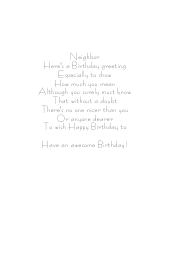 Neighbor
Here's a Birthday greeting
Especially to show
How much you mean
Although you surely must know
That without a doubt
There's no one nicer than you
Or anyone dearer
To wish Happy Birthday to

Have an awesome Birthday!